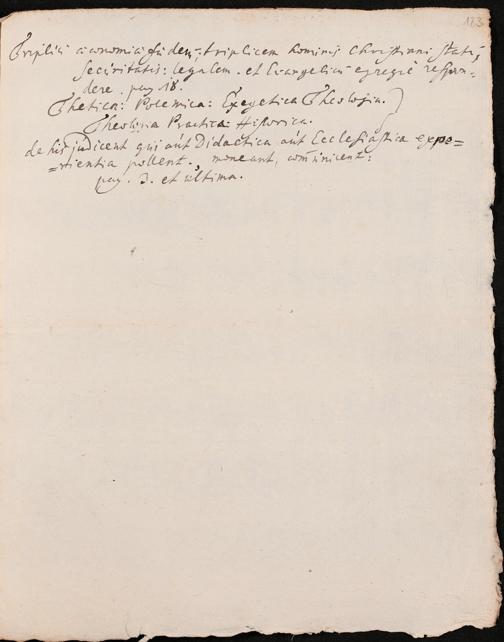 173
Triplici oeconomiae fidem, triplicem hominis Christiani statū,
securitatis: legalem. et Evangelicū egregiè respon-
dere. pag 18.
Thetica: Polemica: Exegetica Theologia.
Theologia Practica Historica.
de his judicent qui aut Didactica aut Ecclesiastica expe=
=rientia pollent, moneant, com̄unicent:
pag. 3. et ultima.